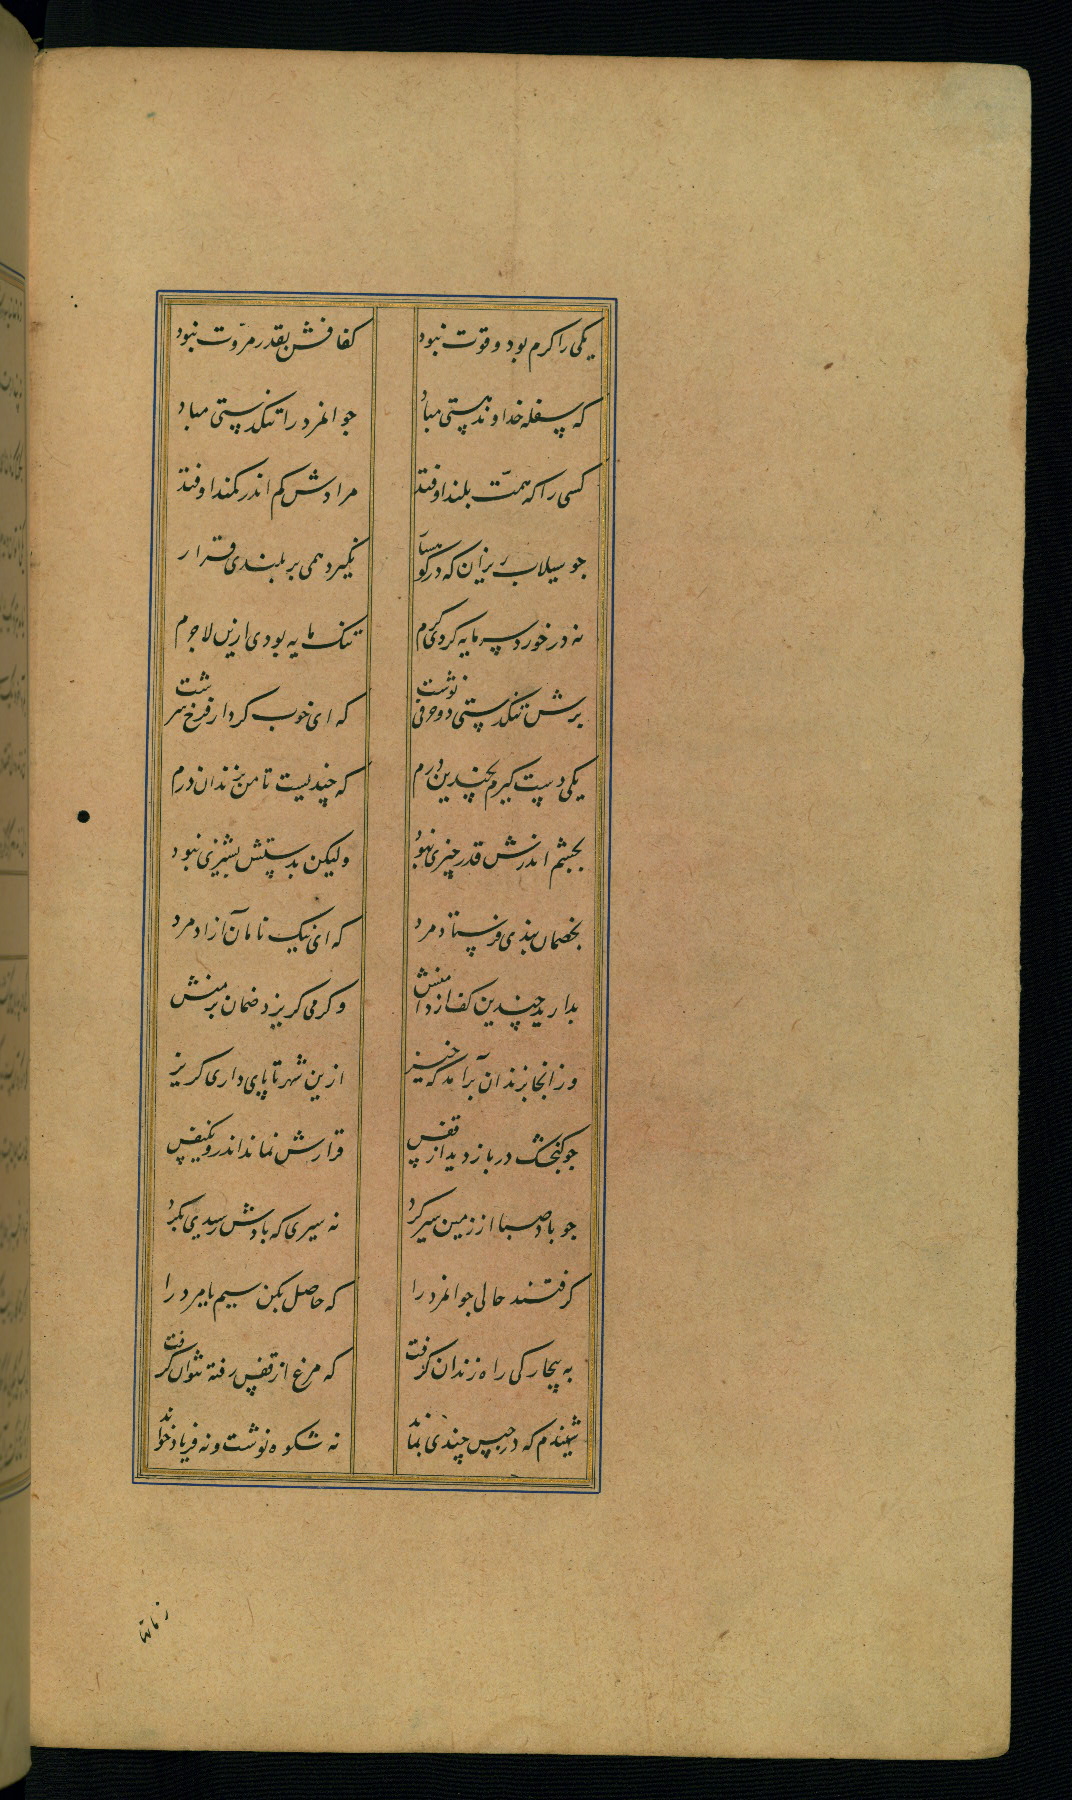 یکی را کرم بود و قوت نبود کفافش بقدر مروّت نبود
که سفله خداوند هستی مباد جوانمرد را تنکدستی مباد
کسی را که همّت بلند اوفتد مرادش کم اندر کمند اوفتد
جو سیلاب ریزان که در کوهسار نکیرد همی بر بلندی قرار
نه در خورد سرمایه کردی کرم تنک مایه بودی ازین لاجرم
برش تنکدستی دو حرفی نوشت که ای خوب کردار فرخ سرشت
یکی دست کیرم بچندین درم که چندیست تا من بزندان درم
بجشم اندرش قدر چیزی نبود ولیکن بدستش بشیزی نبود
بخصمان بندی فرستاد مرد که ای نیک نامان آزاد مرد
بدارید چندین کف از دامنش وکر می کریزد ضمان بر منش
وز انجا بزندان برآمد که خیز ازین شهر تا پای داری کریز
جو کنجشک در باز دید از قفس قرارش نماند اندرو یکنفس
جو باد صبا از زمین سیر کرد نه سیری که بادش رسیدی بکرد
کرفتند حالی جوانمرد را که حاصل بکن سیم یا مرد را
به بیچارکی راه زندان کرفت که مرغ از قفس رفته نتوان کرفت
شنیدم که در حبس چندی بماند نه شکوه نوشت و نه فریاد خواند
زمانها